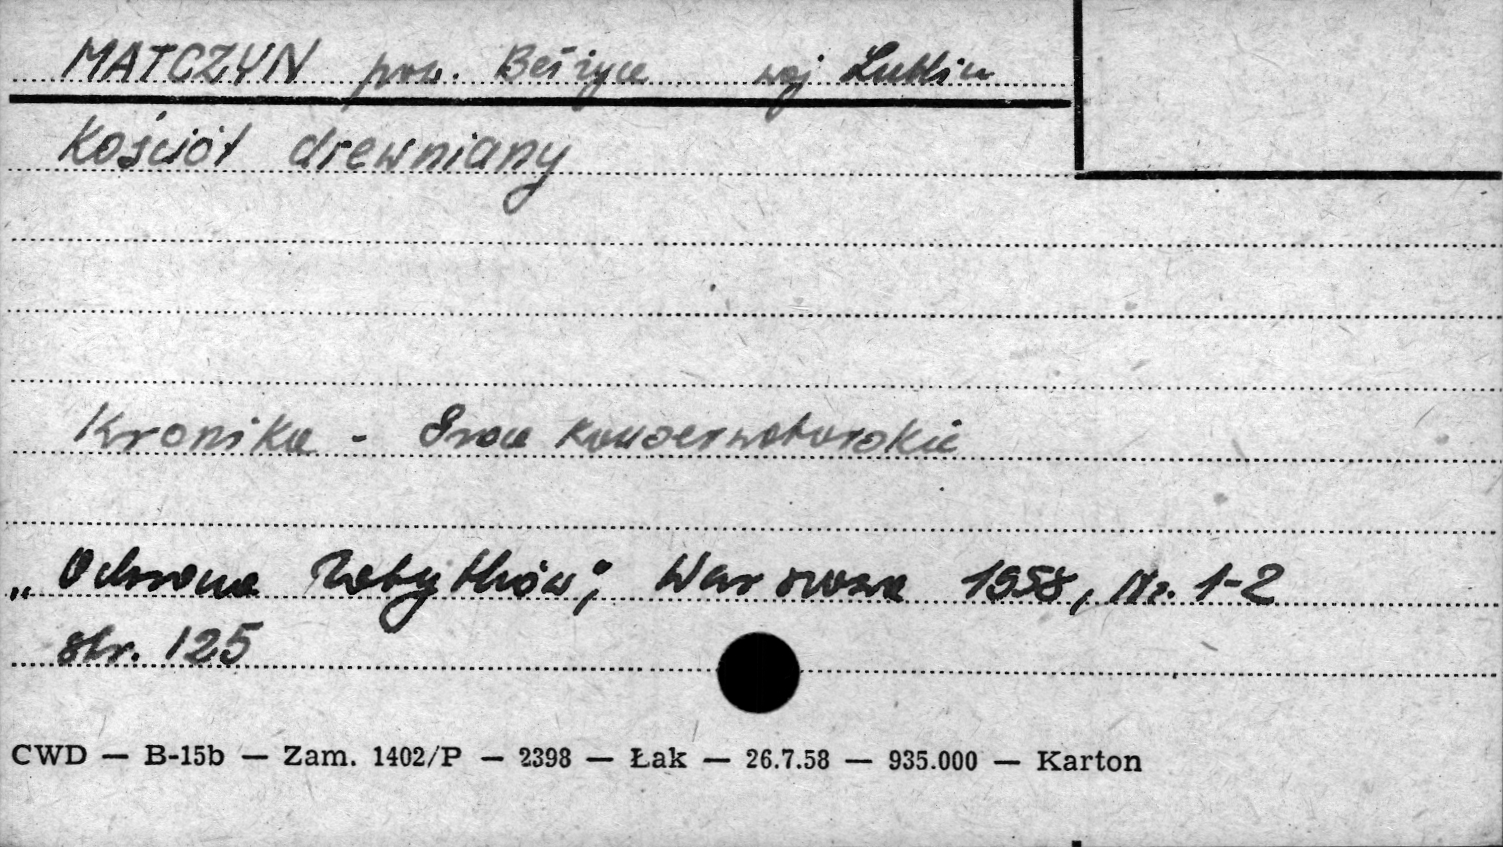 MATCZYN pow. Bełżyce woj Lublin
Kościół drewniany
Kronika - Prace konserwatorskie
„Ochrona Zabytków", Warszawa 1958, Nr. 1-2
str. 125
CWD — B-15b — Zam. 1402/P — 2398 — Łak — 26.7.58 — 935.000 — Karton